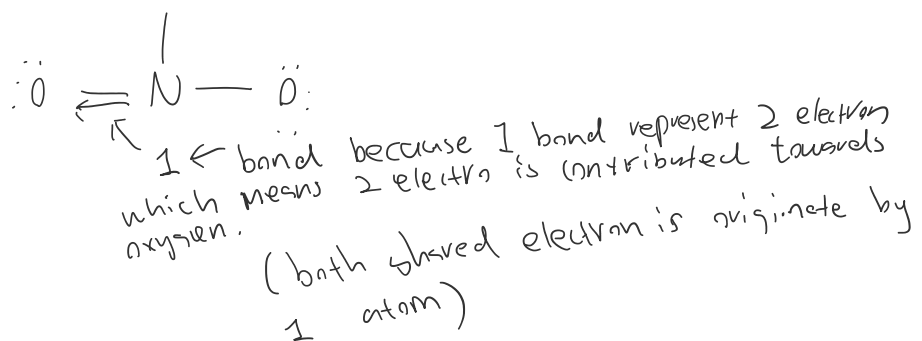 :Ö = N — Ö:
1 ← bond because 1 bond represent 2 electron
which means 2 electro is contributed towards
oxygen.
(both shared electron is originate by
1 atom)